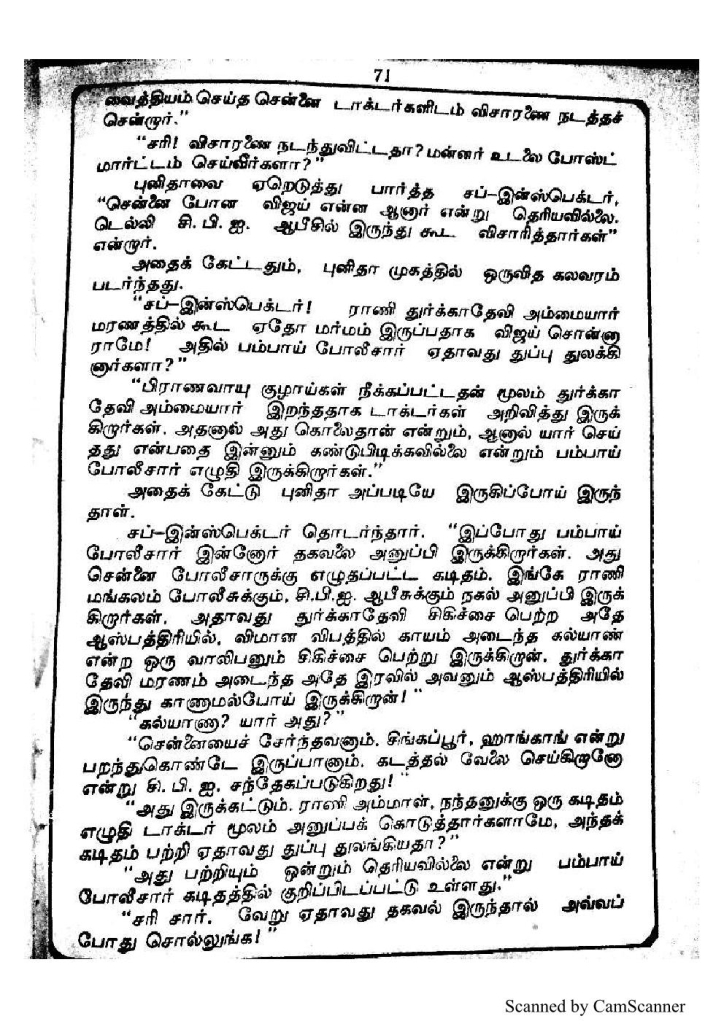 71
வைத்தியம் செய்த சென்னை டாக்டர்களிடம் விசாரணை நடத்தச்
சென்றார்."
"சரி! விசாரணை நடந்துவிட்டதா? மன்னர் உடலை போஸ்ட்
மார்ட்டம் செய்வீர்களா?"
புனிதாவை ஏறெடுத்து பார்த்த சப்-இன்ஸ்பெக்டர்,
"சென்னை போன விஜய் என்ன ஆனார் என்று தெரியவில்லை.
டெல்லி சி. பி. ஐ. ஆபீசில் இருந்து கூட விசாரித்தார்கள்"
என்றார்.
அதைக் கேட்டதும், புனிதா முகத்தில் ஒருவித கலவரம்
படர்ந்தது.
"சப்-இன்ஸ்பெக்டர்! ராணி துர்க்காதேவி அம்மையார்
மரணத்தில் கூட ஏதோ மர்மம் இருப்பதாக விஜய் சொன்னா
ராமே! அதில் பம்பாய் போலீசார் ஏதாவது துப்பு துலக்கி
னார்களா?"
"பிராணவாயு குழாய்கள் நீக்கப்பட்டதன் மூலம் துர்க்கா
தேவி அம்மையார் இறந்ததாக டாக்டர்கள் அறிவித்து இருக்
கிறார்கள். அதனால் அது கொலைதான் என்றும், ஆனால் யார் செய்
தது என்பதை இன்னும் கண்டுபிடிக்கவில்லை என்றும் பம்பாய்
போலீசார் எழுதி இருக்கிறார்கள்."
அதைக் கேட்டு புனிதா அப்படியே இருகிப்போய் இருந்
தாள்.
சப்-இன்ஸ்பெக்டர் தொடர்ந்தார். "இப்போது பம்பாய்
போலீசார் இன்னோர் தகவலை அனுப்பி இருக்கிறார்கள். அது
சென்னை போலீசாருக்கு எழுதப்பட்ட கடிதம். இங்கே ராணி
மங்கலம் போலீசுக்கும், சி.பி.ஐ. ஆபீசுக்கும் நகல் அனுப்பி இருக்
கிறார்கள். அதாவது துர்க்காதேவி சிகிச்சை பெற்ற அதே
ஆஸ்பத்திரியில், விமான விபத்தில் காயம் அடைந்த கல்யாண்
என்ற ஒரு வாலிபனும் சிகிச்சை பெற்று இருக்கிறான். துர்க்கா
தேவி மரணம் அடைந்த அதே இரவில் அவனும் ஆஸ்பத்திரியில்
இருந்து காணாமல்போய் இருக்கிறான்!"
"கல்யாணா? யார் அது?"
"சென்னையைச் சேர்ந்தவனாம். சிங்கப்பூர், ஹாங்காங் என்று
பறந்துகொண்டே இருப்பானாம். கடத்தல் வேலை செய்கிறானோ
என்று சி. பி. ஐ. சந்தேகப்படுகிறது!"
"அது இருக்கட்டும். ராணி அம்மாள், நந்தனுக்கு ஒரு கடிதம்
எழுதி டாக்டர் மூலம் அனுப்பக் கொடுத்தார்களாமே, அந்தக்
கடிதம் பற்றி ஏதாவது துப்பு துலங்கியதா?"
"அது பற்றியும் ஒன்றும் தெரியவில்லை என்று பம்பாய்
போலீசார் கடிதத்தில் குறிப்பிடப்பட்டு உள்ளது."
"சரி சார். வேறு ஏதாவது தகவல் இருந்தால் அவ்வப்
போது சொல்லுங்க!"
Scanned by CamScanner